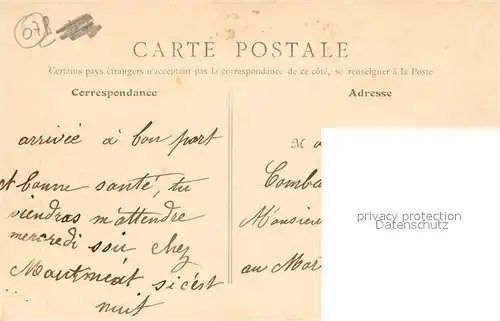 67
CARTE POSTALE
Certains pays étrangers n'acceptant pas la correspondance de ce côté, se renseigner à la Poste
Correspondance
arrivée à bon port
et bonne santé, tu
viendras m'attendre
mercredi soir chez
si c'est
nuit
Adresse
M
Comba
Monsieur
au
privacy protection
Datenschutz